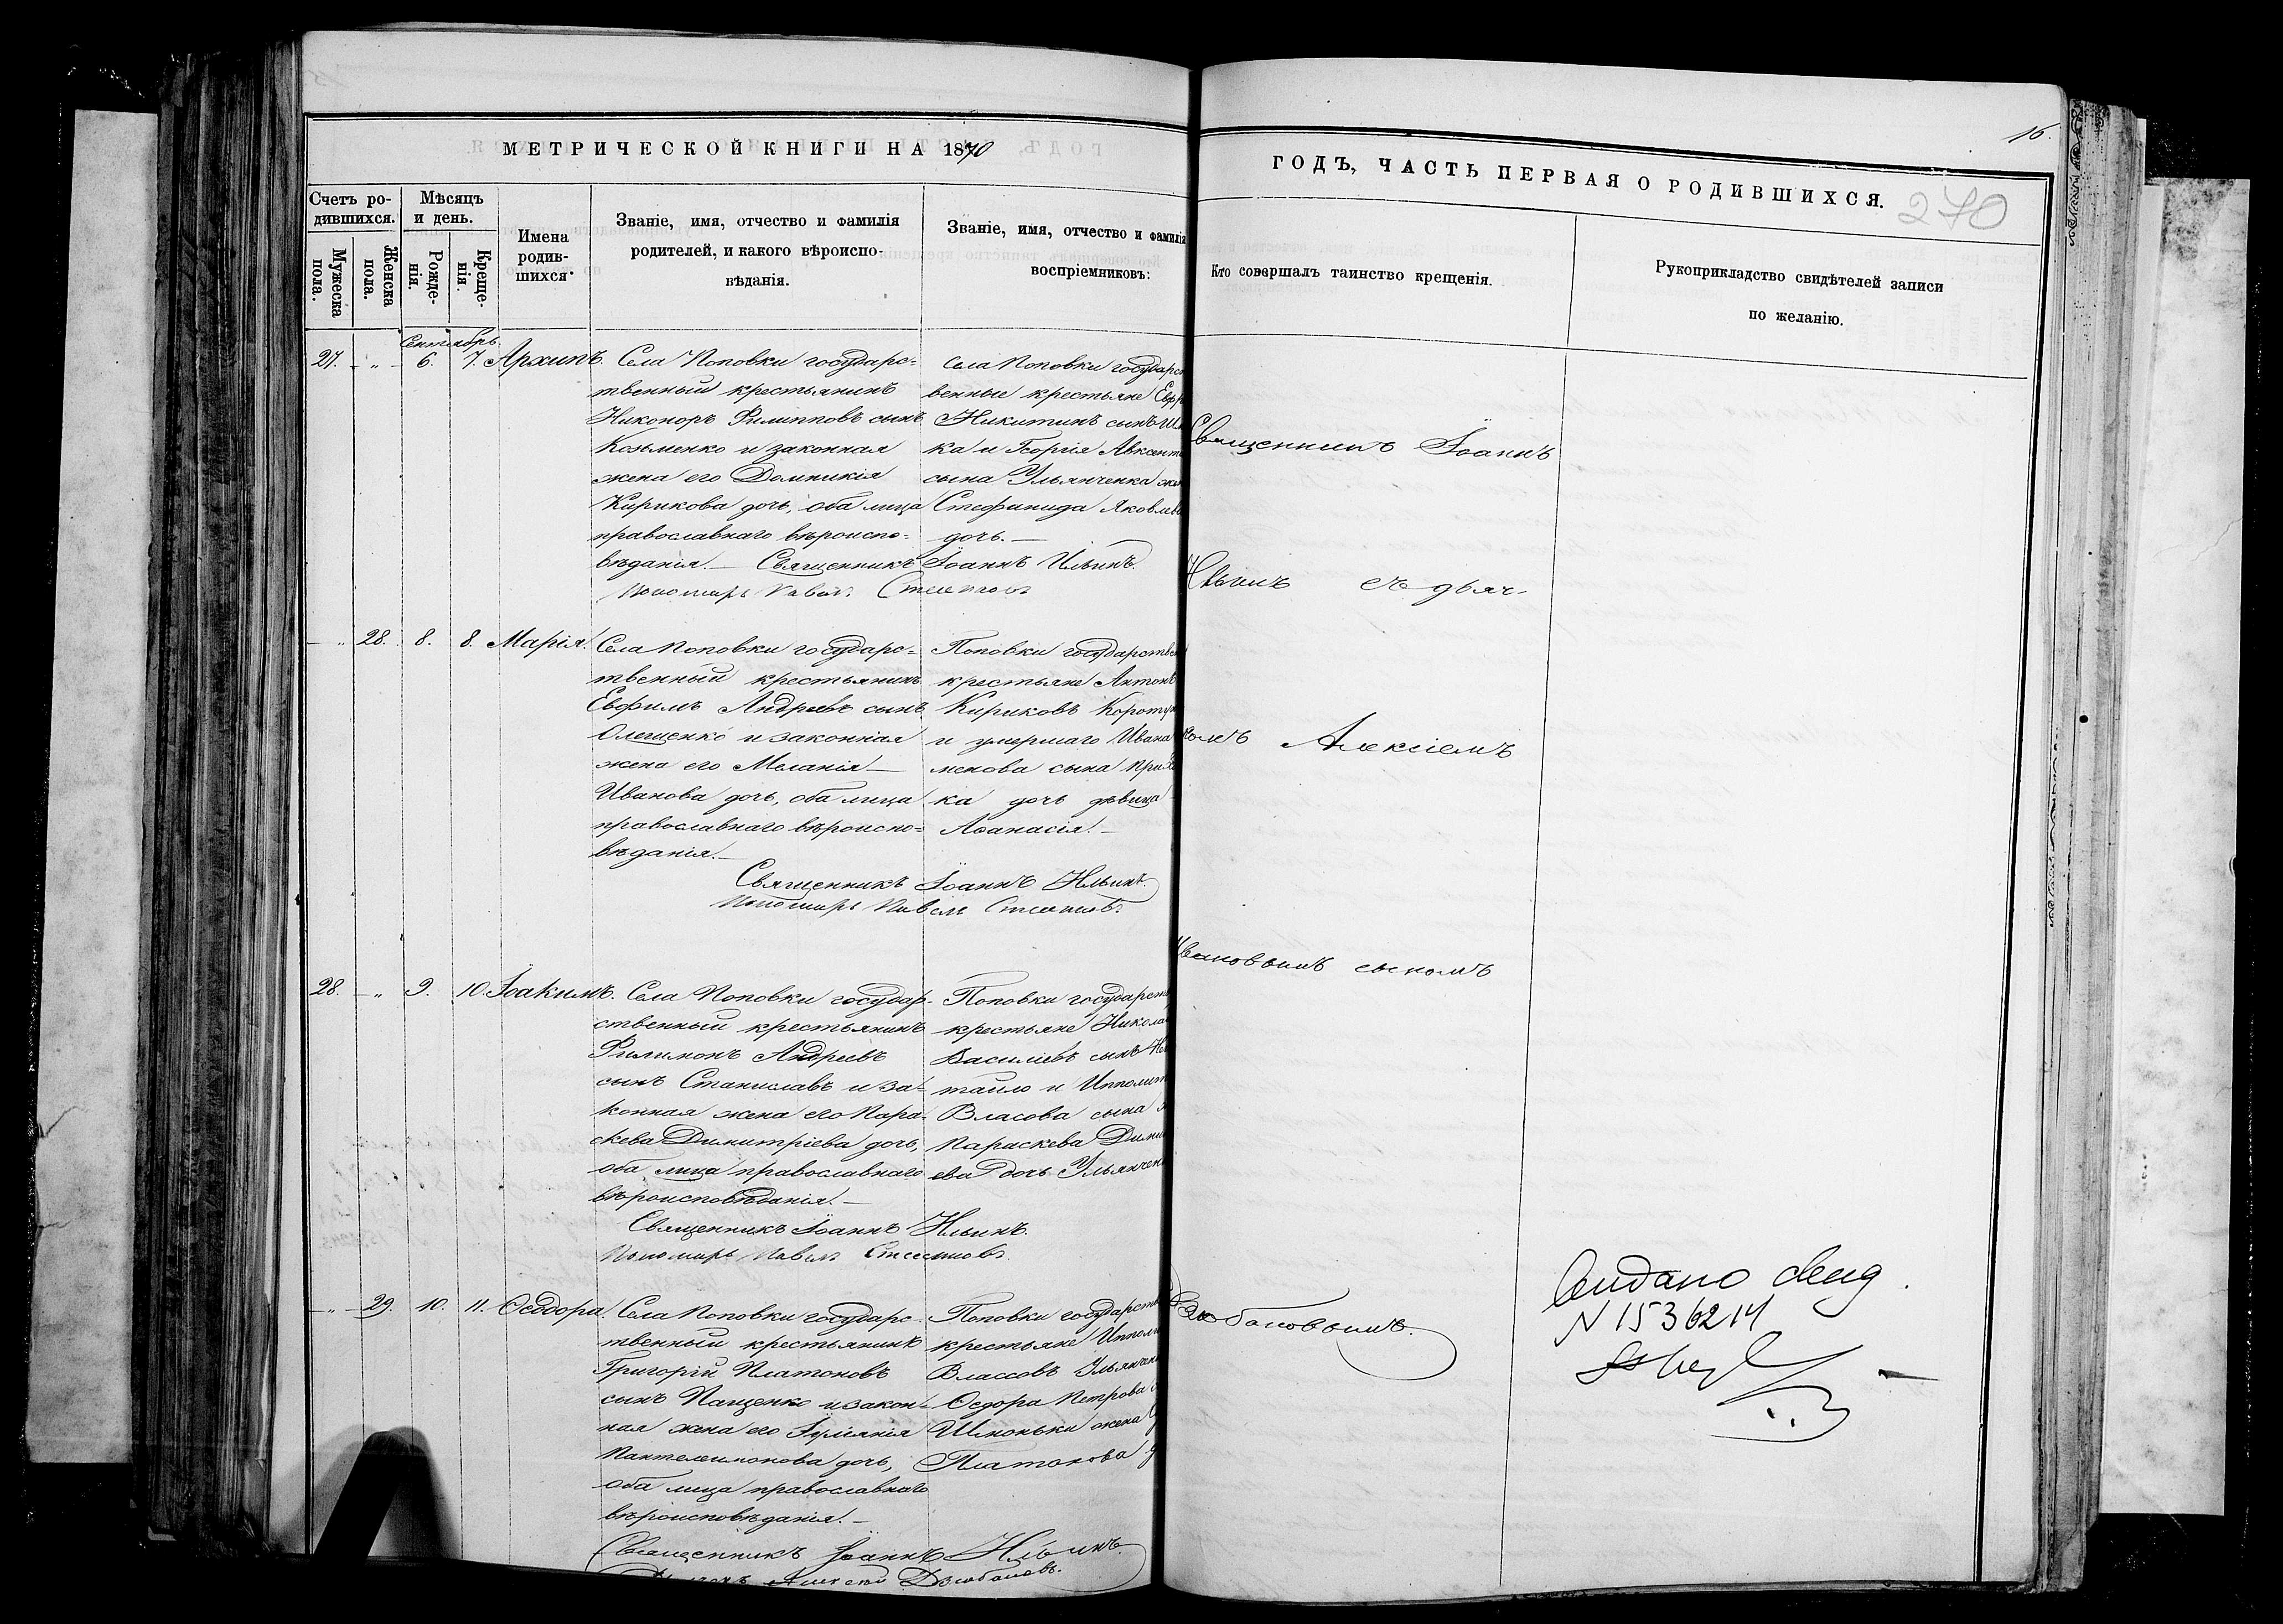 16.
МЕТРИЧЕСКОЙ КНИГИ НА 1870
ГОДЪ, ЧАСТЬ ПЕРВАЯ О РОДИВШИХСЯ.
270
Счетъ ро-
дившихся.
Мужеска
пола.
Женска
пола.
Мѣсяцъ
и день.
Рожде-
нія.
Креще-
нія.
Имена
родив-
шихся
Званіе, имя, отчество и фамилія
родителей, и какого вѣроиспо-
вѣданія.
Званіе, имя, отчество и фамилія
воспріемниковъ:
Кто совершалъ таинство крещенія.
Рукоприкладство свидѣтелей записи
по желанію.
Сентябрь.
27. „ 6. 7. Архипъ.
Села Поповки государс-
твенный крестьянинъ
Никоноръ Филипповъ сынъ
Козьменко и законная
жена его Домникія
Кирикова дочь, оба лица
православнаго вѣроиспо-
вѣданія.— Священникъ Іоаннъ Ильинъ.
Пономарь Павелъ
села Поповки государст
венные крестьяне
Никитинъ сынъ
ка и Георгія Авксент
сына Ульянченка
Стефанида Яковлев
дочь.—
„ 28. 8. 8. Марія.
Села Поповки государс-
твенный крестьянинъ
Евфимъ Андреевъ сынъ
Олещенко и законная
жена его Меланія—
Иванова дочь, оба лица
православнаго вѣроиспо-
вѣданія.—
Священникъ Іоаннъ Ильинъ.
Пономарь Павелъ
Поповки государствен
крестьяне Антонъ
Кириковъ Коротун
и умершаго Ивана
менова сына
ка дочь дѣвица
Аѳанасія.—
28. „ 9. 10. Іоакимъ.
Села Поповки государ-
ственный крестьянинъ
Филимонъ Андреевъ
сынъ Станиславъ и за-
конная жена его Пара-
скева Димитріева дочь,
оба лица православнаго
вѣроисповѣданія.—
Священникъ Іоаннъ Ильинъ.
Пономарь Павелъ
Поповки государств
крестьяне Никола
Василіевъ сынъ
тайло и Ипполит
Власова сына
Параскева Дими
ева дочь Ульянчен
„ 29. 10. 11. Ѳеодора.
Села Поповки государс-
твенный крестьянинъ
Григорій Платоновъ
сынъ Пащенко и закон-
ная жена его Іуліанія
Пантелеимонова дочь,
оба лица православнаго
вѣроисповѣданія.—
Священникъ Іоаннъ Ильинъ.
Алексій Дзюбановъ.
Поповки государств
крестьяне Иппол
Влассовъ Ульянчен
Ѳедора Петрова
жена
Платонова
Священникъ Іоаннъ
Ильинъ съ дьяч-
комъ Алексіемъ
Ивановымъ сыномъ
Дзюбановымъ.
N 1536214